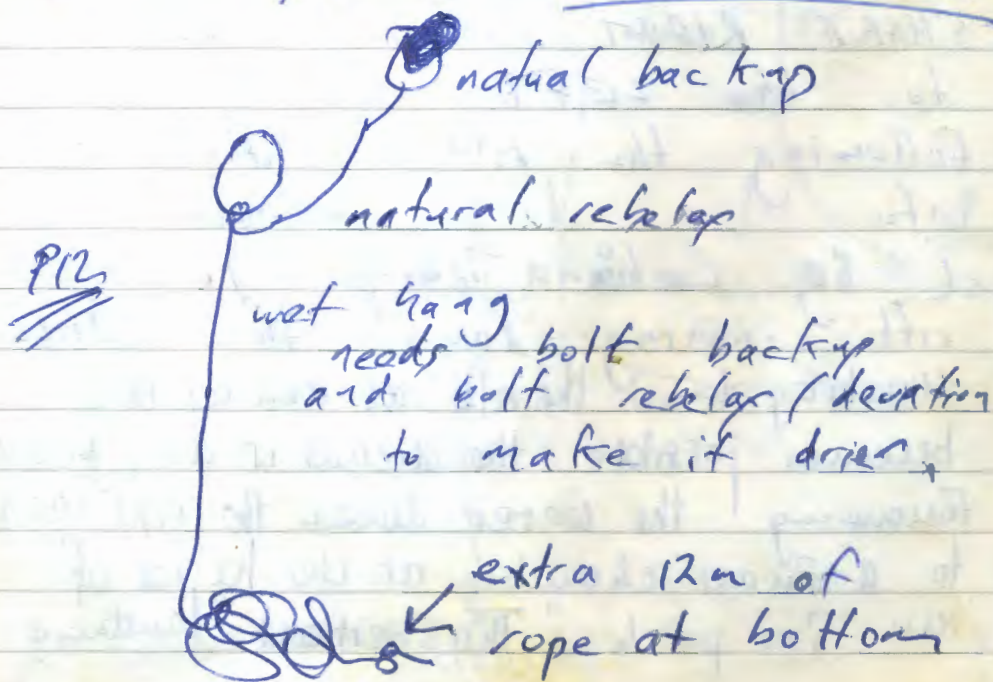 natual backup
natural rebelay
P12
wet hang
needs bolt backup
and bolt rebelay / devation
to make it drier.
extra 12m of
rope at bottom